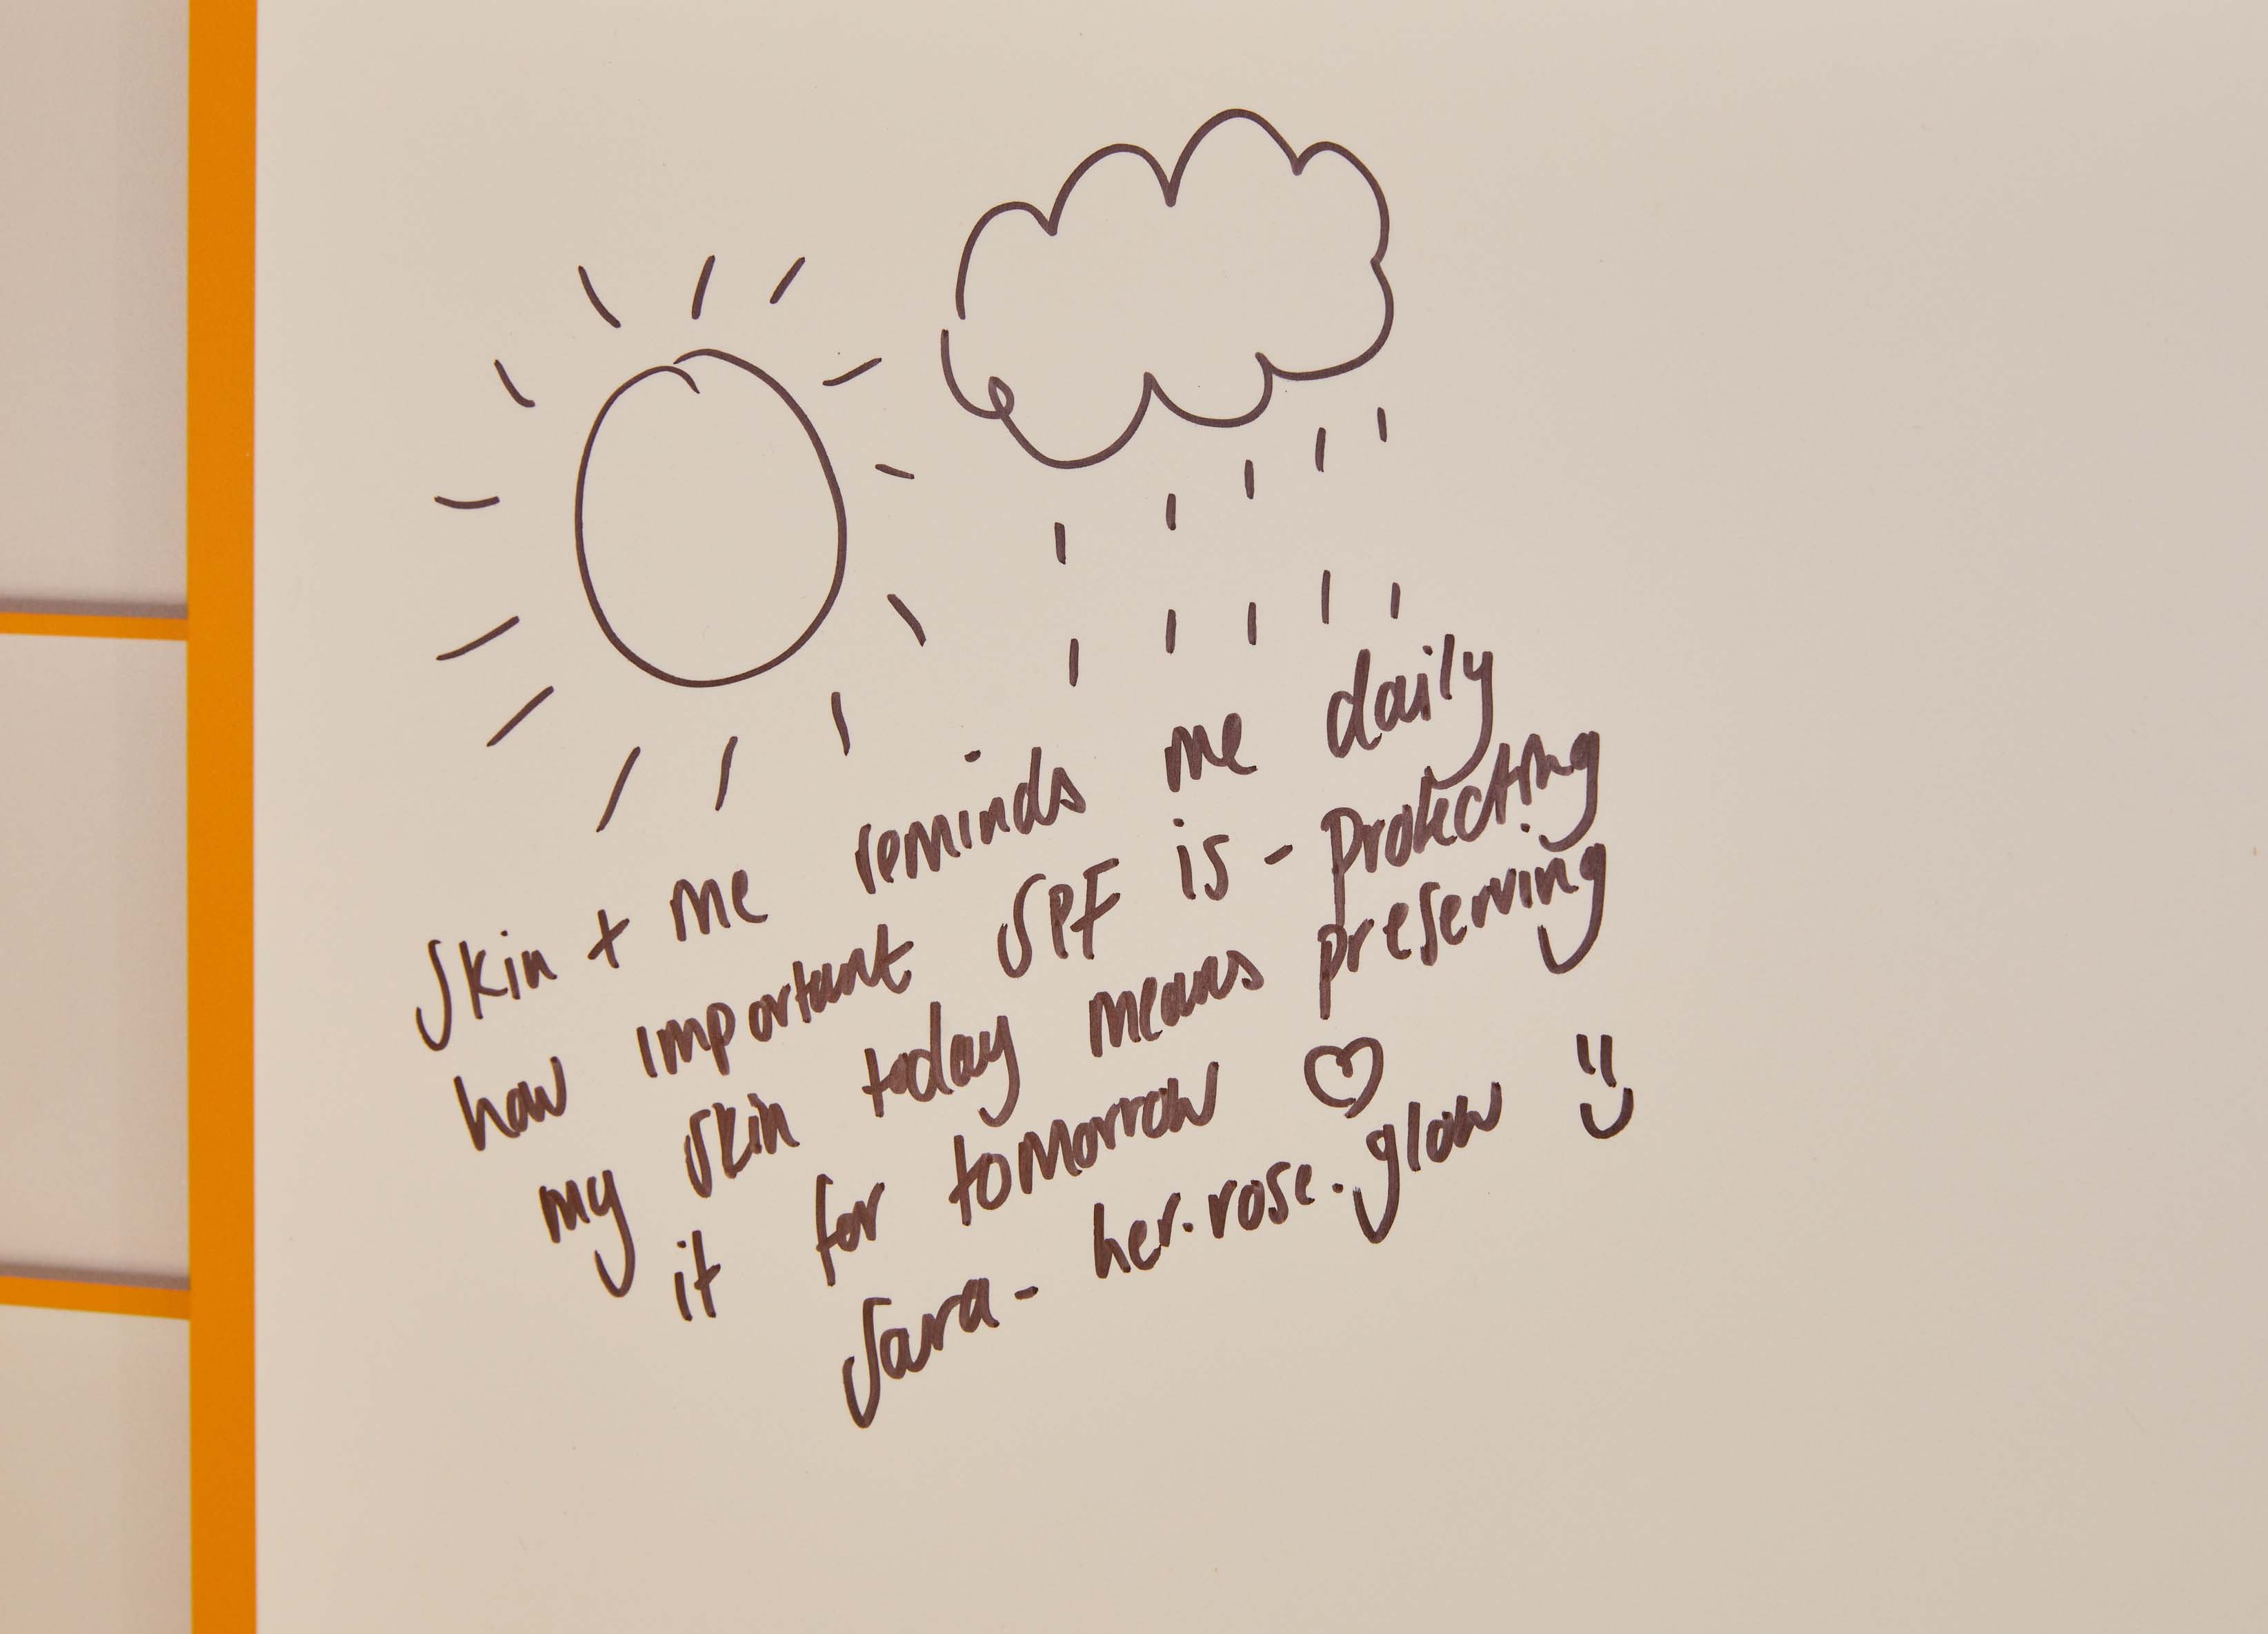 Skin + me reminds me daily
how important SPF is - protecting
my skin today means preserving
it for tomorrow ♡
Sara - her.rose.glow